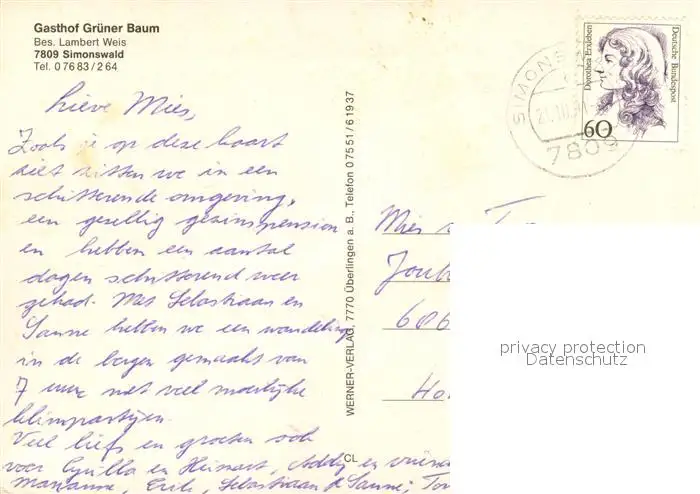 Gasthof Grüner Baum
Bes. Lambert Weis
7809 Simonswald
Tel. 0 76 83 / 2 64
Lieve Mies,
Zoals je op deze kaart
ziet zitten we in een
schitterende omgeving,
een gezellig gezinspension
en hebben een aantal
dagen schitterend weer
gehad. Met Sebastiaan en
Sanne hebben we een wandeling
in de bergen gemaakt van
7 uur met veel moeilijke
klimpartijen.
Veel liefs en groeten ook
voor Cyrilla en Heimert, Addy en
Marianne, Erik, Sebastiaan & Sanne,
WERNER-VERLAG, 7770 Überlingen a. B., Telefon 0 75 51 / 6 19 37
CL
Dorothea Erxleben
Deutsche Bundespost
60
SIMONS
7809
Mies
686
privacy protection
Datenschutz